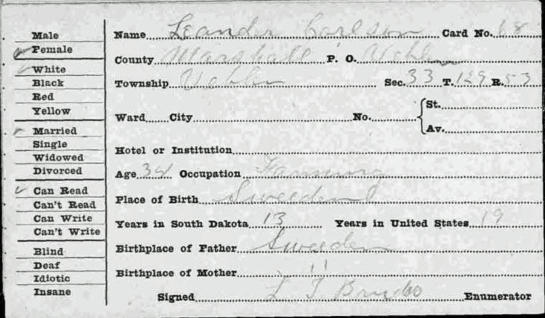 Male
Female
White
Black
Red
Yellow
Married
Single
Widowed
Divorced
Can Read
Can't Read
Can Write
Can't Write
Blind
Deaf
Idiotic
Insane
Name Leander Carlson Card No. 68
County Marshall P. O. Veblen
Township Veblen Sec. 33 T. 129 R. 53
Ward City No. St.
Av.
Hotel or Institution
Age 34 Occupation Farming
Place of Birth Sweeden
Years in South Dakota 13 Years in United States 19
Birthplace of Father Sweeden
Birthplace of Mother "
Signed L Enumerator